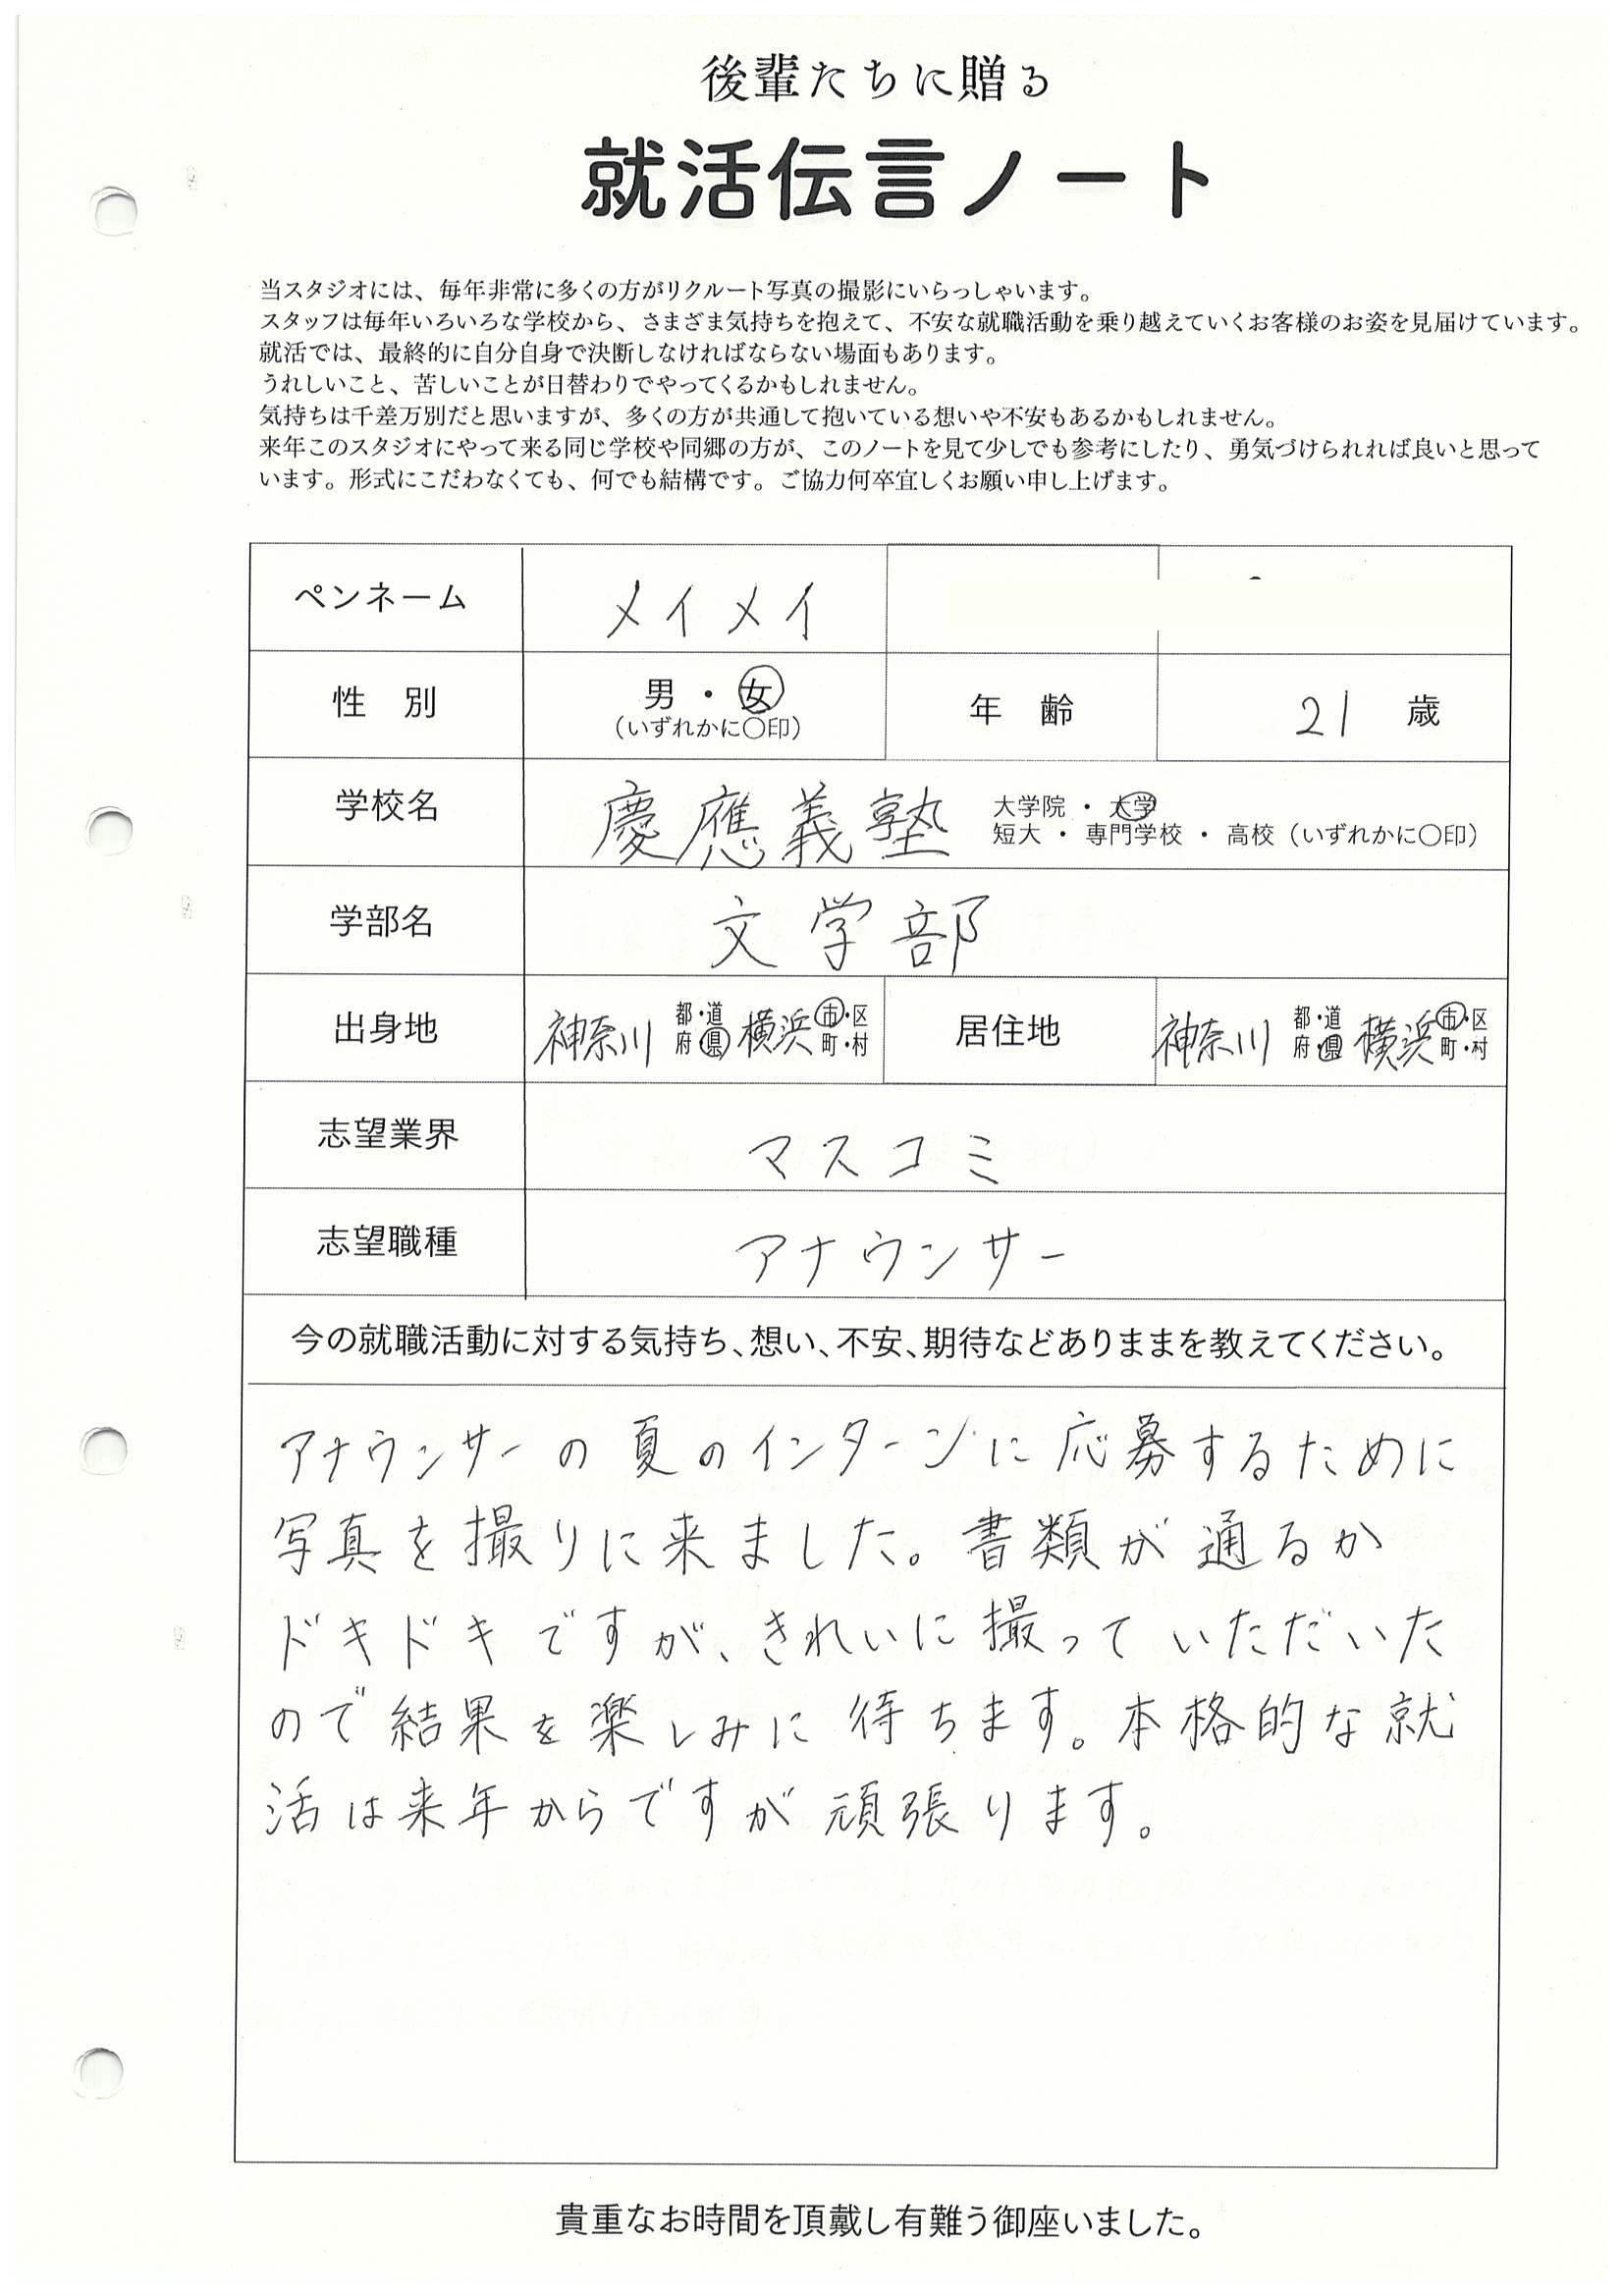 後輩たちに贈る
就活伝言ノート
当スタジオには、毎年非常に多くの方がリクルート写真の撮影にいらっしゃいます。
スタッフは毎年いろいろな学校から、さまざま気持ちを抱えて、不安な就職活動を乗り越えていくお客様のお姿を見届けています。
就活では、最終的に自分自身で決断しなければならない場面もあります。
うれしいこと、苦しいことが日替わりでやってくるかもしれません。
気持ちは千差万別だと思いますが、多くの方が共通して抱いている想いや不安もあるかもしれません。
来年このスタジオにやって来る同じ学校や同郷の方が、このノートを見て少しでも参考にしたり、勇気づけられれば良いと思って
います。形式にこだわなくても、何でも結構です。ご協力何卒宜しくお願い申し上げます。
ペンネーム メイメイ
性 別 男・女 (いずれかに○印) 年 齢 21 歳
学校名 慶應義塾 大学院・大学
短大・専門学校・高校(いずれかに○印)
学部名 文学部
出身地 神奈川 都・道府・県 横浜 市・区町・村 居住地 神奈川 都・道府・県 横浜 市・区町・村
志望業界 マスコミ
志望職種 アナウンサー
今の就職活動に対する気持ち、想い、不安、期待などありままを教えてください。
アナウンサーの夏のインターンに応募するために
写真を撮りに来ました。書類が通るか
ドキドキですが、きれいに撮っていただいた
ので結果を楽しみに待ちます。本格的な就
活は来年からですが頑張ります。
貴重なお時間を頂戴し有難う御座いました。